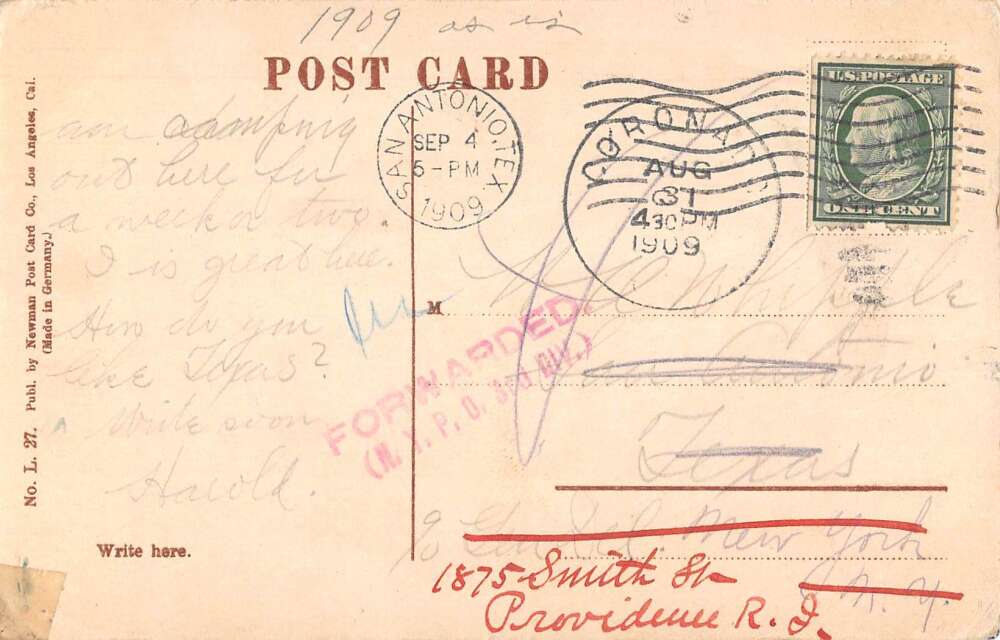 1909 as is
POST CARD
U.S. POSTAGE
ONE CENT
SAN ANTONIO, TEX
SEP 4
5-PM
1909
CORONADO
AUG
31
430PM
1909
am camping
out here for
a week or two.
I is great here.
How do you
like Texas?
Write soon
Harold.
Write here.
No. L. 27. Publ. by Newman Post Card Co., Los Angeles, Cal.
(Made in Germany.)
M
Whipple
San Antonio
Texas
FORWARDED.
(N. Y. P. O. 3rd DIV.)
% Gen Del. New York
N. Y.
1875 Smith St
Providence R. I.